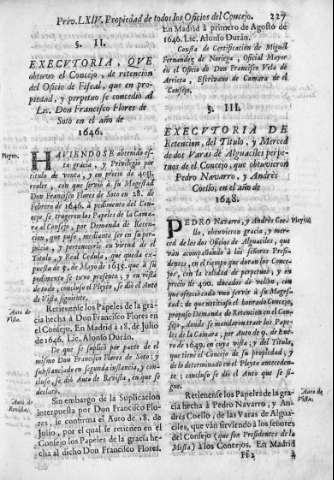 Priv. LXIV. Propiedad de todos los Oficios del Concejo. 227
§. II.
EXECUTORIA, QUE
obtuvo el Concejo, de retencion
del Oficio de Fiscal, que en pro-
piedad, y perpetuo se concedió al
Lic. Don Francisco Flores de
Soto en el año de
1646.
Pleyto.
HAVIENDOSE obtenido es-
ta gracia, y Privilegio por
titulo de venta, y en precio de
reales, con que sirvió à su Magestad
Don Francisco Flores de Soto en 28. de
Febrero de 1646. à pedimento del Conce-
jo, se trugeron los Papeles de la Cama-
ra al Consejo, por Demanda de Reten-
cion, que puso, mediante ser en su per-
juicio, y contravenir en virtud de el
Titulo, y Real Cedula, que queda ex-
puesta de 9. de Mayo de 1635. que à su
pedimento se tuvo presente, y en vista
de todo, concluso el Pleyto, se dió el Auto
de Vista siguiente.
Auto de
Vista.
Retienense los Papeles de la gra-
cia hecha à Don Francisco Flores en
el Consejo. En Madrid à 18. de Julio
de 1646. Lic. Alonso Durán.
De que se suplicó por parte de el
mismo Don Francisco Flores de Soto: y
substanciada en segunda instancia, y con-
clusa, se dió Auto de Revista, en que se
declaró.
Auto de
Revista.
Sin embargo de la Suplicacion
interpuesta por Don Francisco Flo-
res, se confirma el Auto de 18. de
Julio, por el qual se retienen en el
Consejo los Papeles de la gracia he-
cha al dicho Don Francisco Flores.
En Madrid à primero de Agosto de
1646. Lic. Alonso Durán.
Consta de Certificacion de Miguel
Fernandez de Noriega, Oficial Mayor
en el Oficio de Don Francisco Vela de
Arriega, Escrivano de Camara de el
Consejo.
§. III.
EXECUTORIA DE
Retencion, del Titulo, y Merced
de dos Varas de Alguaciles perpe-
tuos de el Concejo, que obtuvieron
Pedro Navarro, y Andrès
Coello, en el año de
1648.
Pleyto.
PEDRO Navarro, y Andrès Coe-
llo, obtuvieron gracia, y mer-
ced de los dos Oficios de Alguaciles, que
van acompañando à los señores Presi-
dentes, en el tiempo que duran los Conce-
jos, con la calidad de perpetuos, y en
precio de 400. ducados de vellon, con
que ofrecieron servir à su Mages-
tad, de que noticioso el honrado Concejo,
propuso Demanda de Retencion en el Con-
sejo, donde se mandaron traer los Pape-
les de la Camara, por Auto de 9. de Ene-
ro de 1649. en cuya vista; y del Titulo,
que tiene el Concejo de su propiedad, y
de lo determinado en el Pleyto anteceden-
te; concluso se dió el Auto que se si-
gue.
Auto de
Vista.
Retienense los Papeles de la gra-
cia hecha à Pedro Navarro, y An-
drès Coello, de las Varas de Algua-
ciles, que van sirviendo à los señores
del Consejo (que son Presidentes de la
Mesta) à los Concejos. En Madrid
Ff2 à